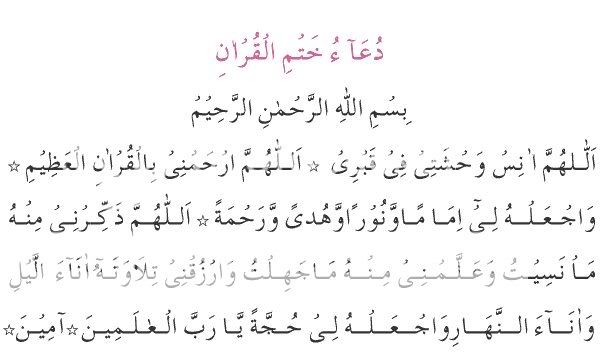 دُعَآءُ خَتْمِ الْقُرْاٰنِ
بِسْمِ اللّٰهِ الرَّحْمٰنِ الرَّحِيْمِ
اَللّٰهُمَّ اٰنِسْ وَحْشَتِىْ فِىْ قَبْرِىْ ☆ اَللّٰهُمَّ ارْحَمْنِىْ بِالْقُرْاٰنِ الْعَظِيْمِ ☆
وَاجْعَلْهُ لِىْٓ اِمَامًا وَّنُوْرًا وَّهُدًى وَّرَحْمَةً ☆ اَللّٰهُمَّ ذَكِّرْنِىْ مِنْهُ
مَا نَسِيْتُ وَعَلَّمْنِىْ مِنْهُ مَاجَهِلْتُ وَارْزُقْنِىْ تِلَاوَتَهٗٓ اٰنَآءَ الَّيْلِ
وَاٰنَآءَ النَّهَارِ وَاجْعَلْهُ لِىْ حُجَّةً يَّا رَبَّ الْعٰلَمِيْنَ ☆ آمِيْنَ ☆